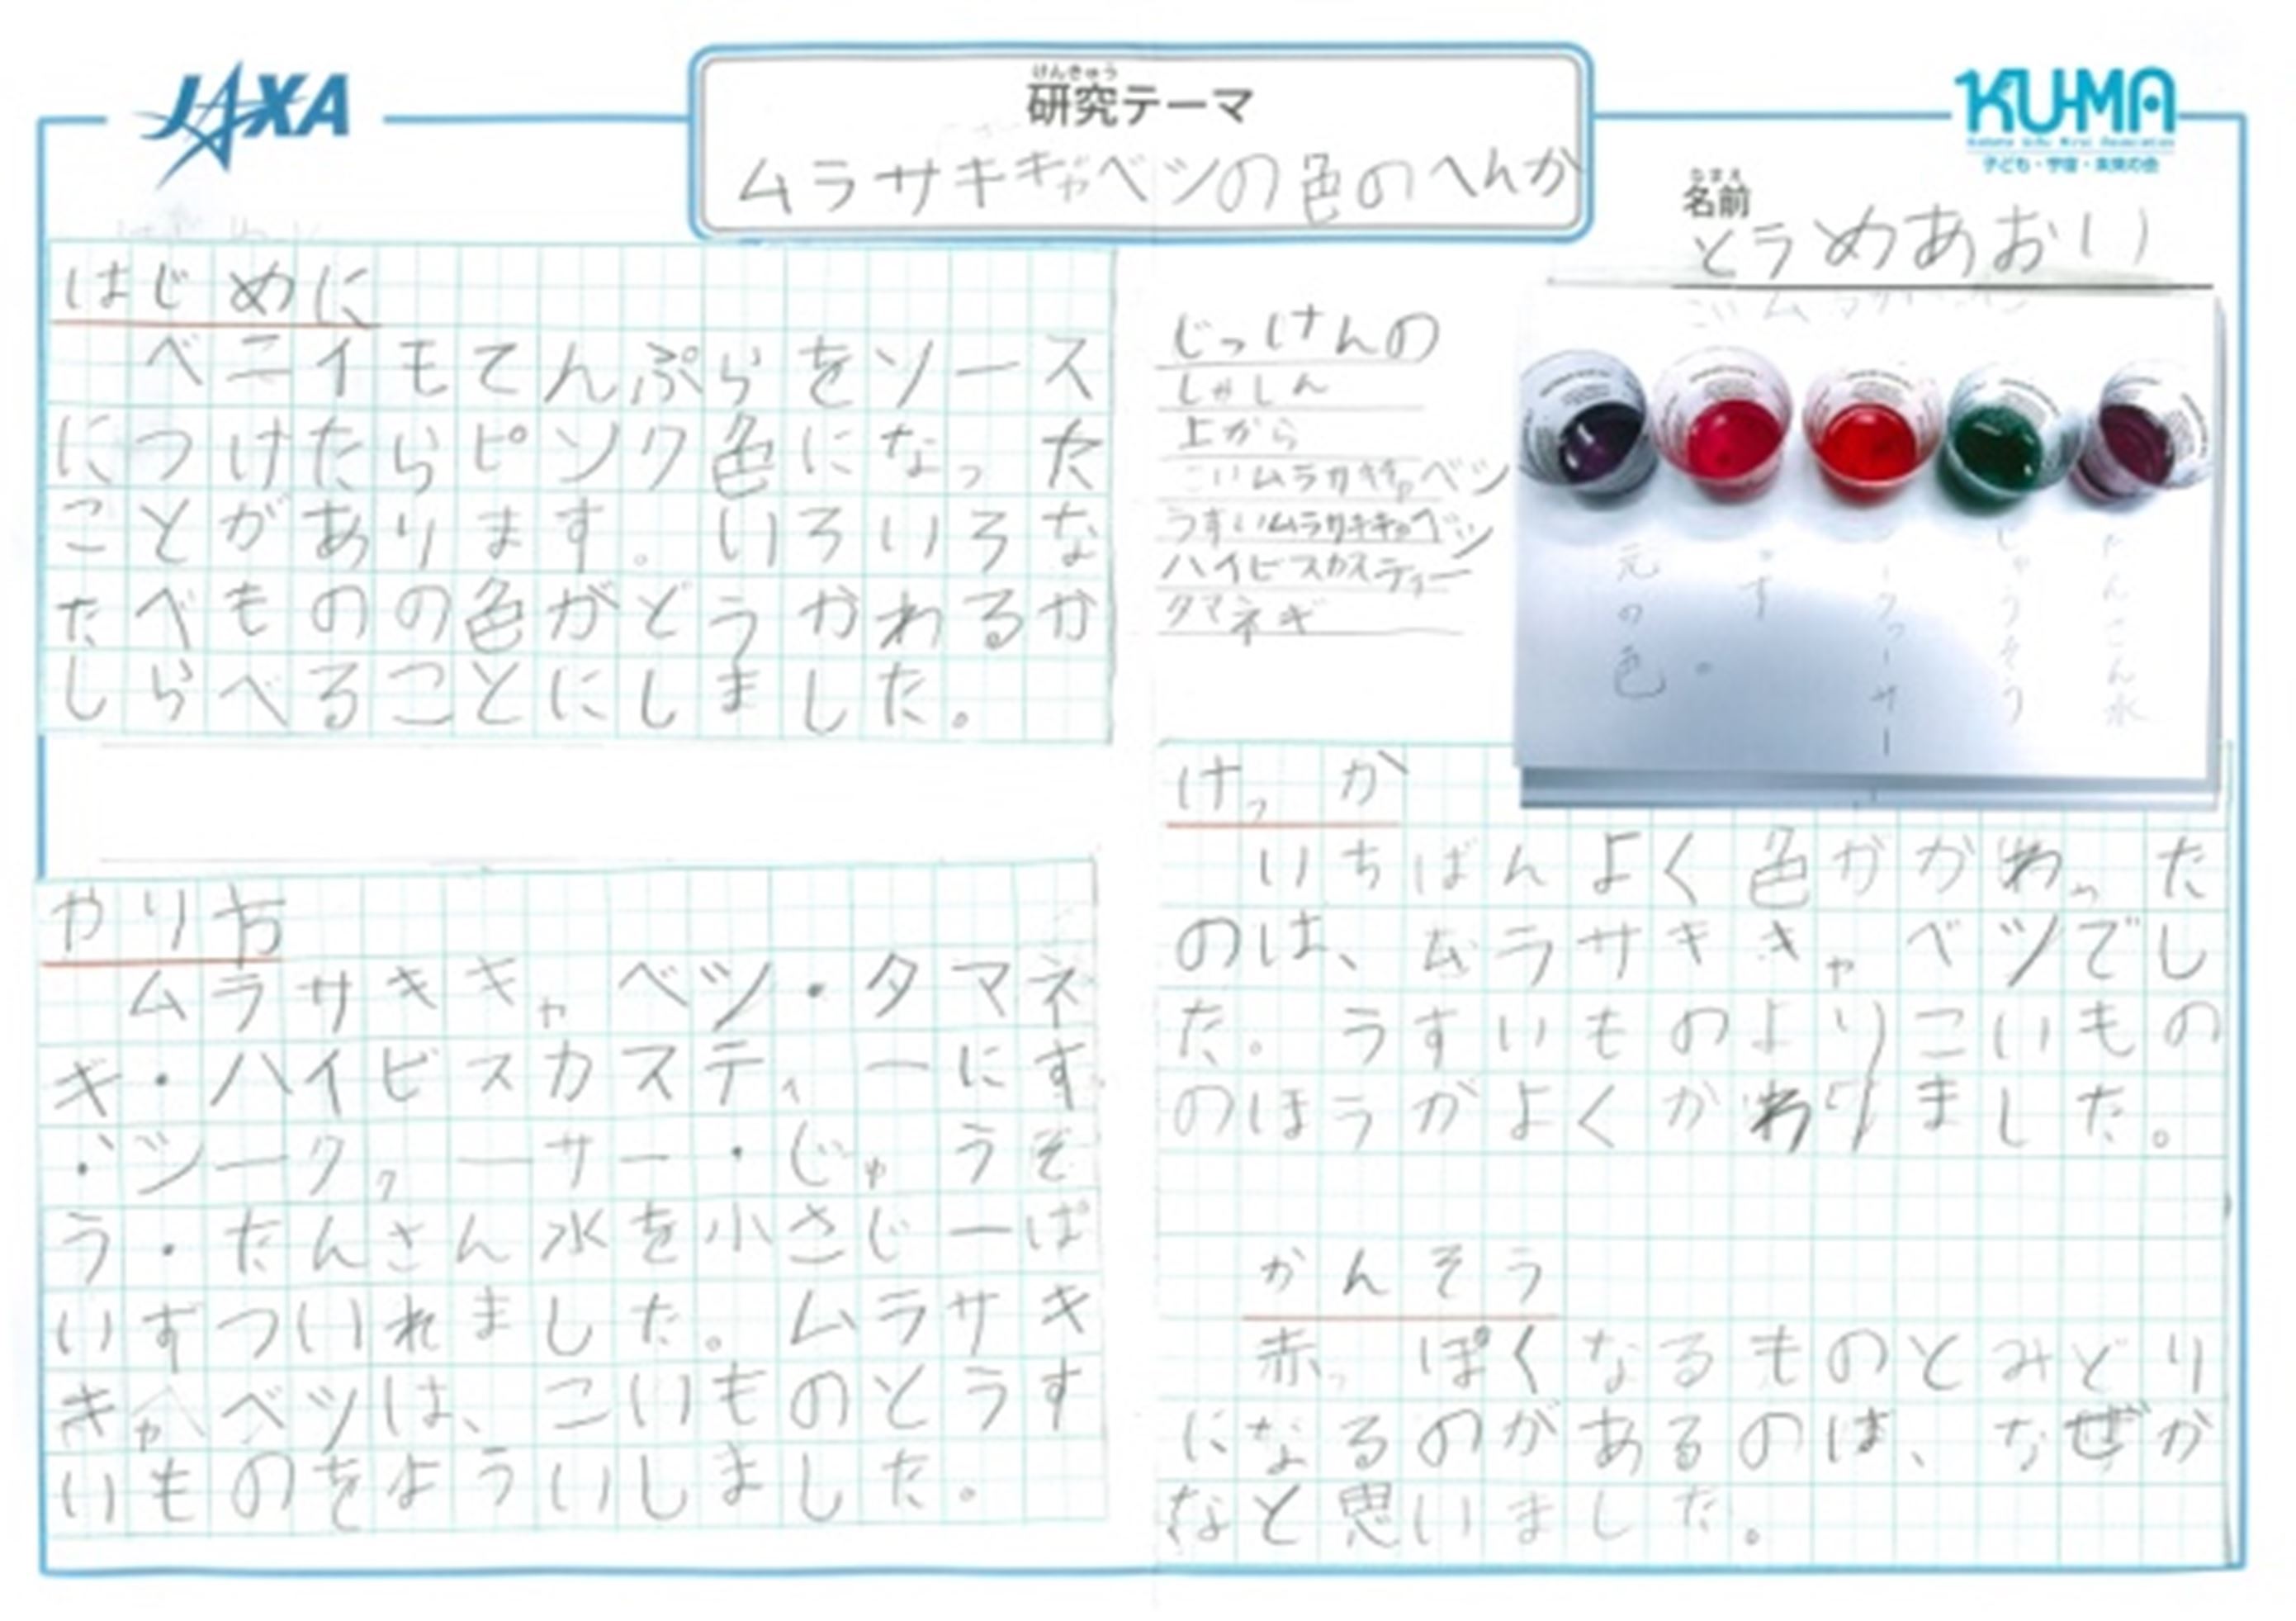 JAXA
けんきゅう
研究テーマ
ムラサキキャベツの色のへんか
KU-MA
子ども・宇宙・未来の会
なまえ
名前
とうめあおい
はじめに
ベニイモてんぷらをソース
につけたらピンク色になった
ことがあります。いろいろな
たべものの色がどうかわるか
しらべることにしました。
やり方
ムラサキキャベツ・タマネ
ギ・ハイビスカスティーにす
・シークヮーサー・じゅうそ
う・たんさん水を小さじ一ぱ
いずついれました。ムラサキ
キャベツは、こいものとうす
いものをよういしました。
じっけんの
しゃしん
上から
こいムラサキキャベツ
うすいムラサキキャベツ
ハイビスカスティー
タマネギ
元の色
す
じゅうそう
たんさん水
けっか
いちばんよく色がかわった
のは、ムラサキキャベツでし
た。うすいものよりこいもの
のほうがよくかわりました。
かんそう
赤っぽくなるものとみどり
になるのがあるのは、なぜか
なと思いました。